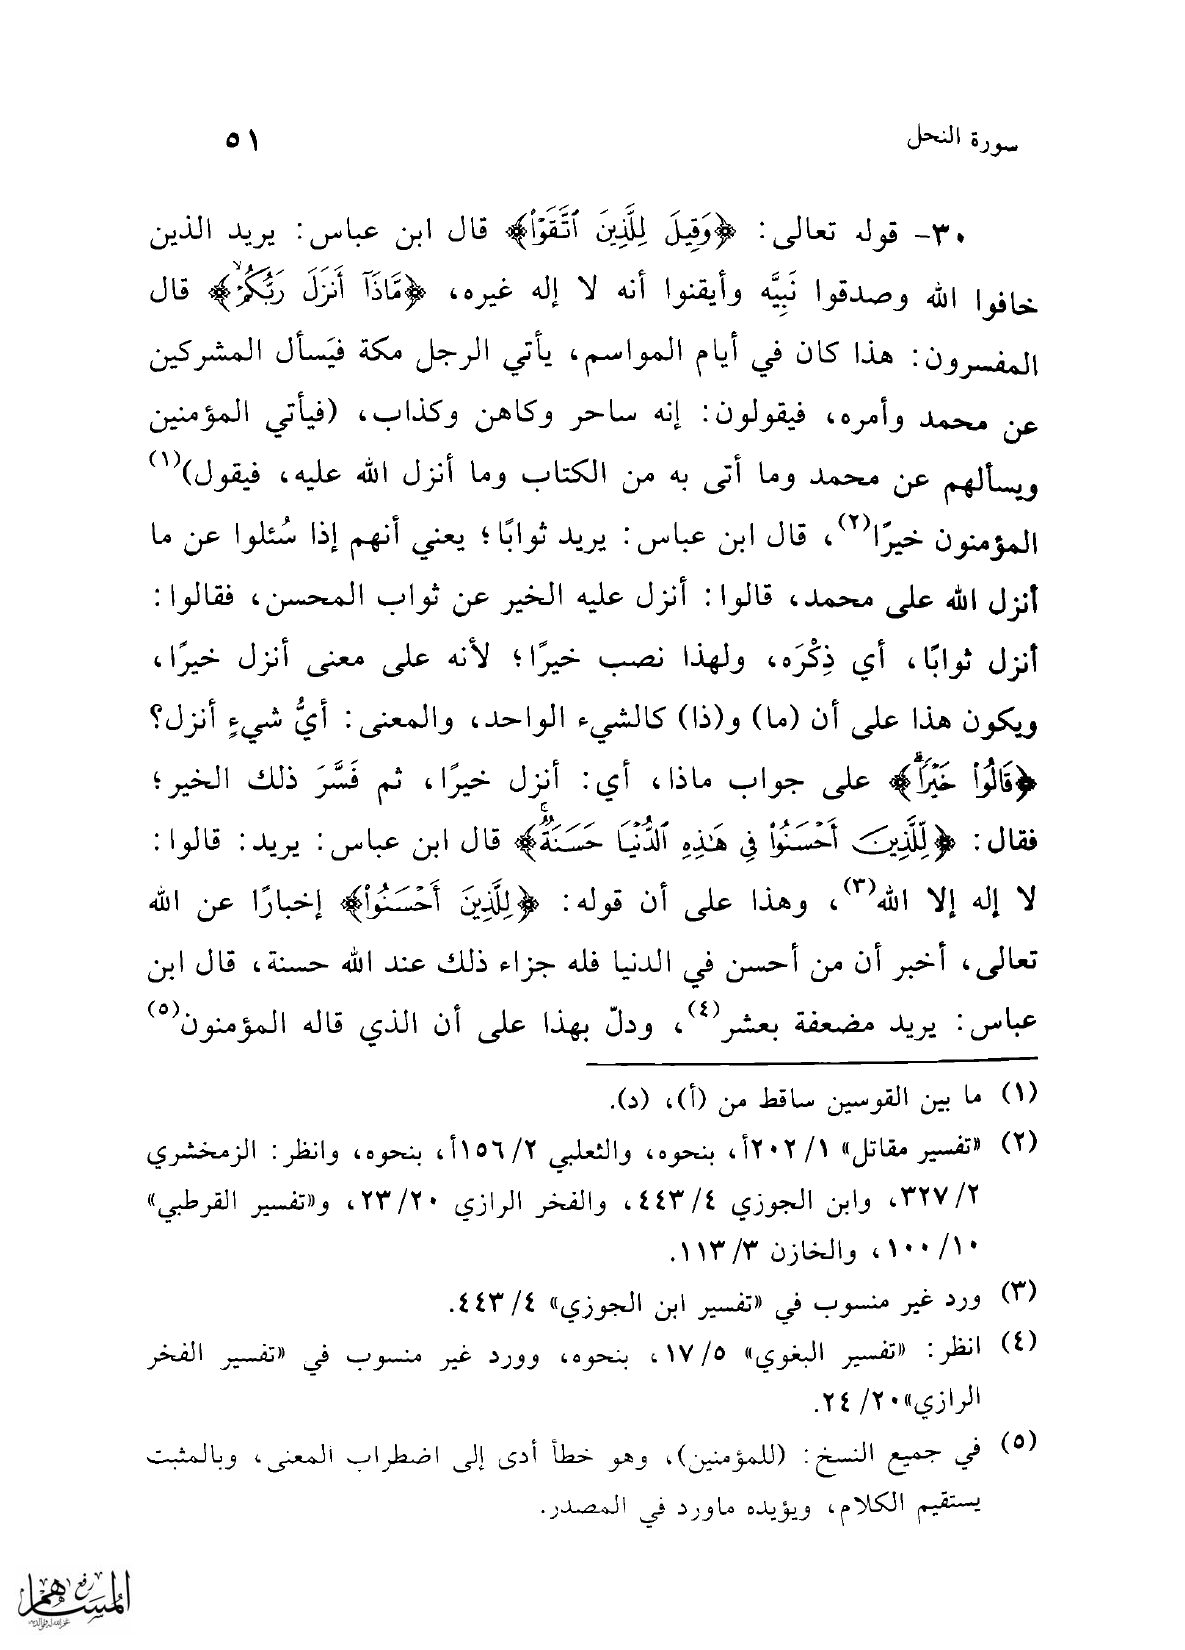 سورة النحل
٥١
٣٠- قوله تعالى: ﴿وَقِيلَ لِلَّذِينَ ٱتَّقَوْا۟﴾ قال ابن عباس: يريد الذين
خافوا الله وصدقوا نَبِيَّه وأيقنوا أنه لا إله غيره، ﴿مَّاذَآ أَنزَلَ رَبُّكُمْ﴾ قال
المفسرون: هذا كان في أيام المواسم، يأتي الرجل مكة فيَسأل المشركين
عن محمد وأمره، فيقولون: إنه ساحر وكاهن وكذاب، (فيأتي المؤمنين
ويسألهم عن محمد وما أتى به من الكتاب وما أنزل الله عليه، فيقول)(١)
المؤمنون خيرًا(٢)، قال ابن عباس: يريد ثوابًا؛ يعني أنهم إذا سُئلوا عن ما
أنزل الله على محمد، قالوا: أنزل عليه الخير عن ثواب المحسن، فقالوا:
أنزل ثوابًا، أي ذِكْرَه، ولهذا نصب خيرًا؛ لأنه على معنى أنزل خيرًا،
ويكون هذا على أن (ما) و(ذا) كالشيء الواحد، والمعنى: أيُّ شيءٍ أنزل؟
﴿قَالُوا۟ خَيْرًا﴾ على جواب ماذا، أي: أنزل خيرًا، ثم فَسَّرَ ذلك الخير؛
فقال: ﴿لِّلَّذِينَ أَحْسَنُوا۟ فِى هَـٰذِهِ ٱلدُّنْيَا حَسَنَةٌ﴾ قال ابن عباس: يريد: قالوا:
لا إله إلا الله(٣)، وهذا على أن قوله: ﴿لِلَّذِينَ أَحْسَنُوا۟﴾ إخبارًا عن الله
تعالى، أخبر أن من أحسن في الدنيا فله جزاء ذلك عند الله حسنة، قال ابن
عباس: يريد مضعفة بعشر(٤)، ودلّ بهذا على أن الذي قاله المؤمنون(٥)
(١) ما بين القوسين ساقط من (أ)، (د).
(٢) «تفسير مقاتل» ١/ ٢٠٢أ، بنحوه، والثعلبي ٢/ ١٥٦أ، بنحوه، وانظر: الزمخشري
٢/ ٣٢٧، وابن الجوزي ٤/ ٤٤٣، والفخر الرازي ٢٠/ ٢٣، و«تفسير القرطبي»
١٠/ ١٠٠، والخازن ٣/ ١١٣.
(٣) ورد غير منسوب في «تفسير ابن الجوزي» ٤/ ٤٤٣.
(٤) انظر: «تفسير البغوي» ٥/ ١٧، بنحوه، وورد غير منسوب في «تفسير الفخر
الرازي» ٢٠/ ٢٤.
(٥) في جميع النسخ: (للمؤمنين)، وهو خطأ أدى إلى اضطراب المعنى، وبالمثبت
يستقيم الكلام، ويؤيده ماورد في المصدر.